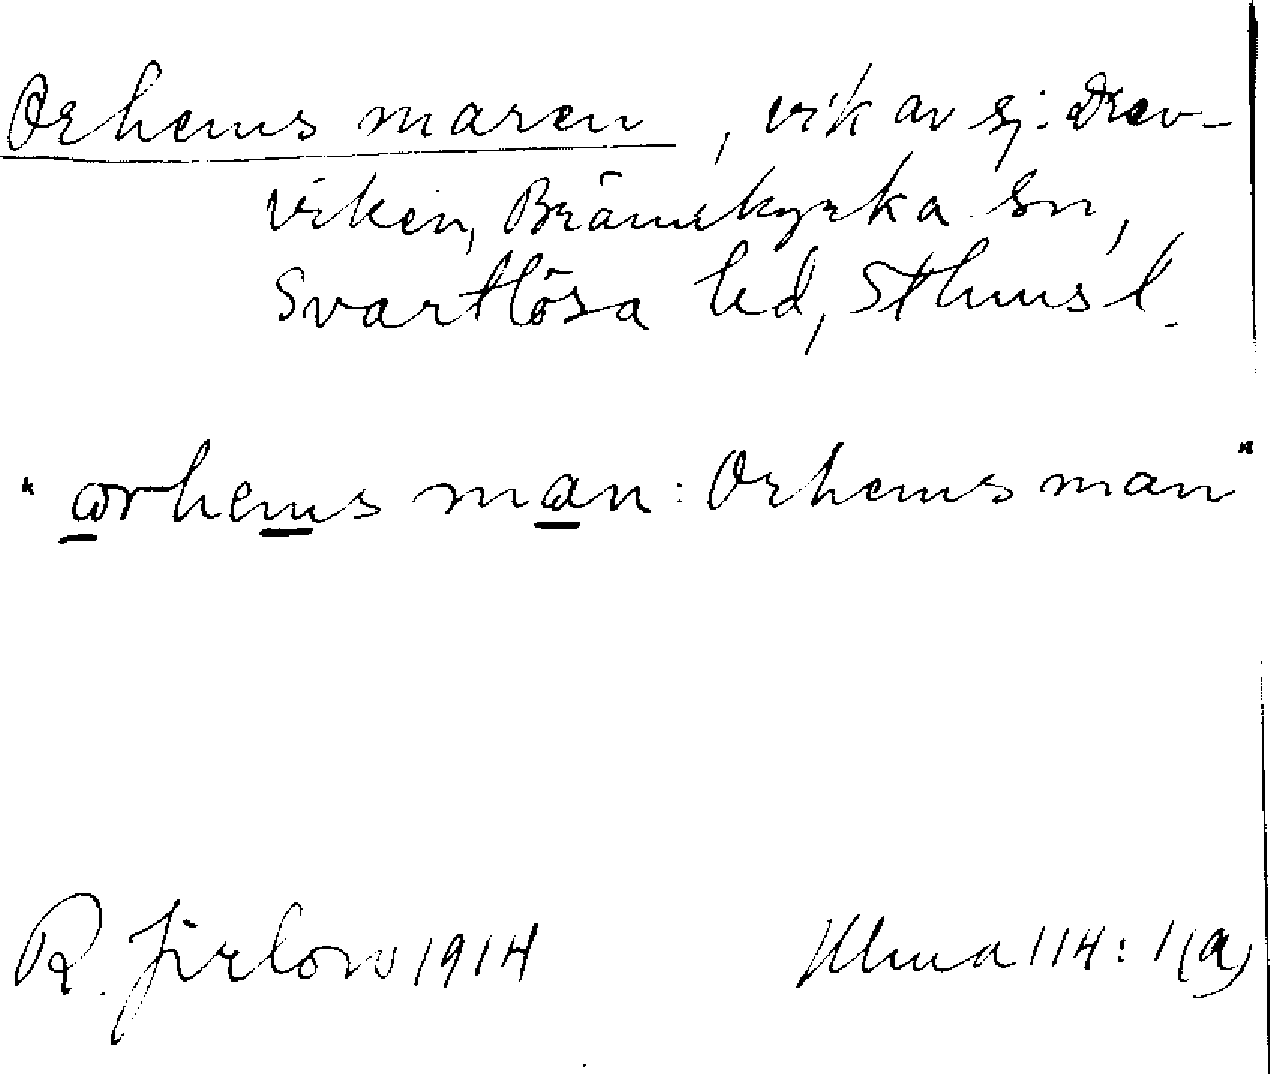 Orhems maren, vik av sj: Drev-
viken, Brännkyrka sn,
Svartlösa hd, Sthms l.
"orhems man: Orhems man"
R. Jirlow 1914
Ulma 114: 1(a)